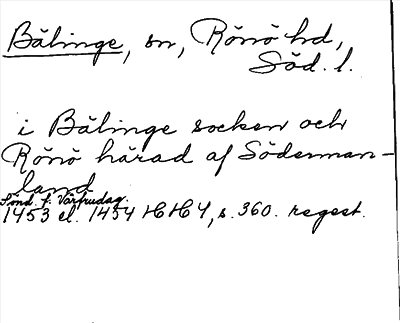 Bälinge, sn, Rönö hd,
Söd. l.
i Bälinge socken och
Rönö härad af Söderman-
land
Sönd. f. Vårfrudag.
1453 el. 1454 HH 4, s. 360. regest.